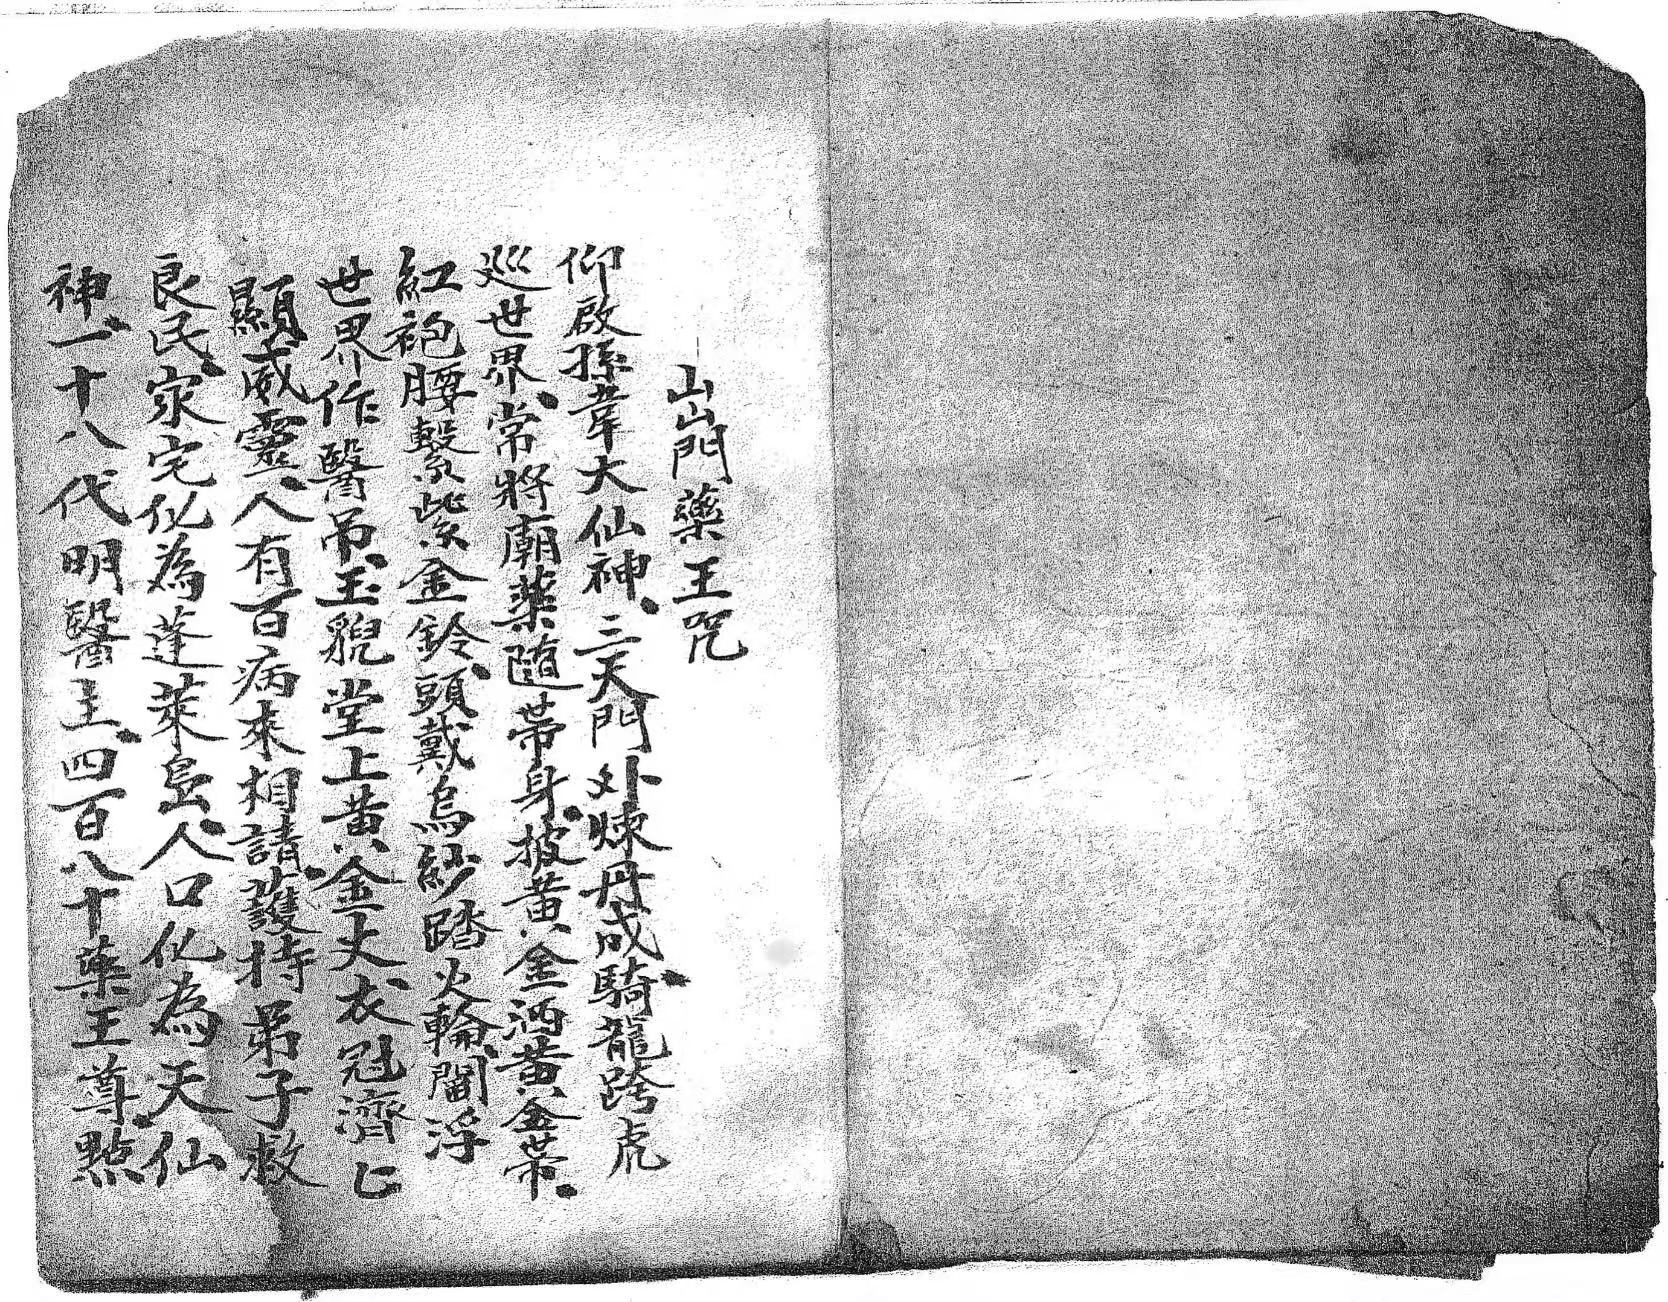 山山門藥王咒
仰啟孫韋大仙神、三天門外煉丹成、騎龍跨虎
巡世界、常將廟藥隨帶身、披黃金洒黃金帶、
紅袍腰繫紫金鈴、頭戴烏紗踏火輪、閻浮
世界作醫吊、玉貌堂上黃金丈、衣冠濟亡
顯威靈、人有百病來相請、護持弟子救
良民、家宅化為蓬萊島、人口化為天仙
神、一十八代明醫主、四百八十藥王尊、點